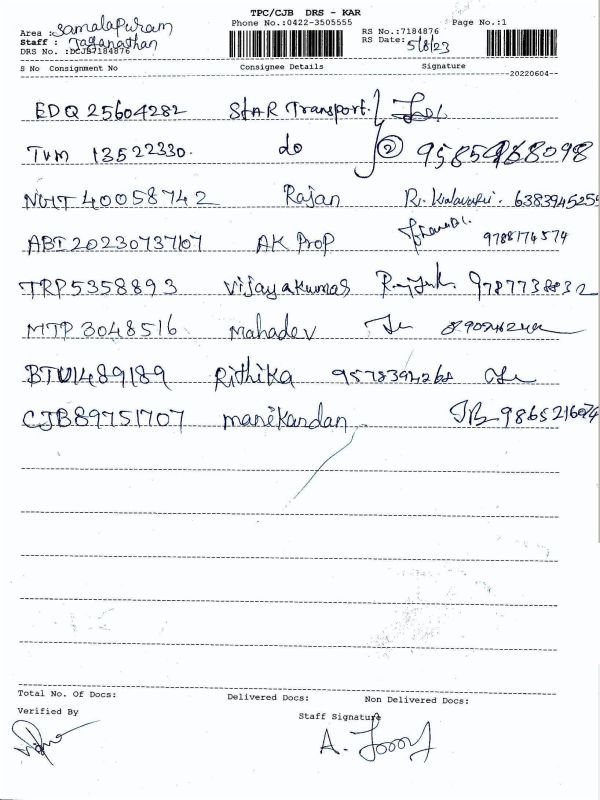 TPC/CJB DRS - KAR
Phone No.:0422-3505555 Page No.:1
Area : Samalapuram RS No.:7184876
Staff : Jaganathan RS Date: 5/8/23
DRS No. :DCJB7184876
S No Consignment No Consignee Details Signature
--20220604--
EDQ 25604282 StAR Transport.
TVM 13522330. do 2 9585968098
40058742 Rajan R. 6383945255
ABI 20230737167 AK Prop 9788174574
TRP5358893 Vijayakumar 9787738832
MTP 3048516 Mahadev
BTV1489189 Rithika 9578394268
CJB89751707 manikandan 9865216074
Total No. Of Docs: Delivered Docs: Non Delivered Docs:
Verified By Staff Signature
A.